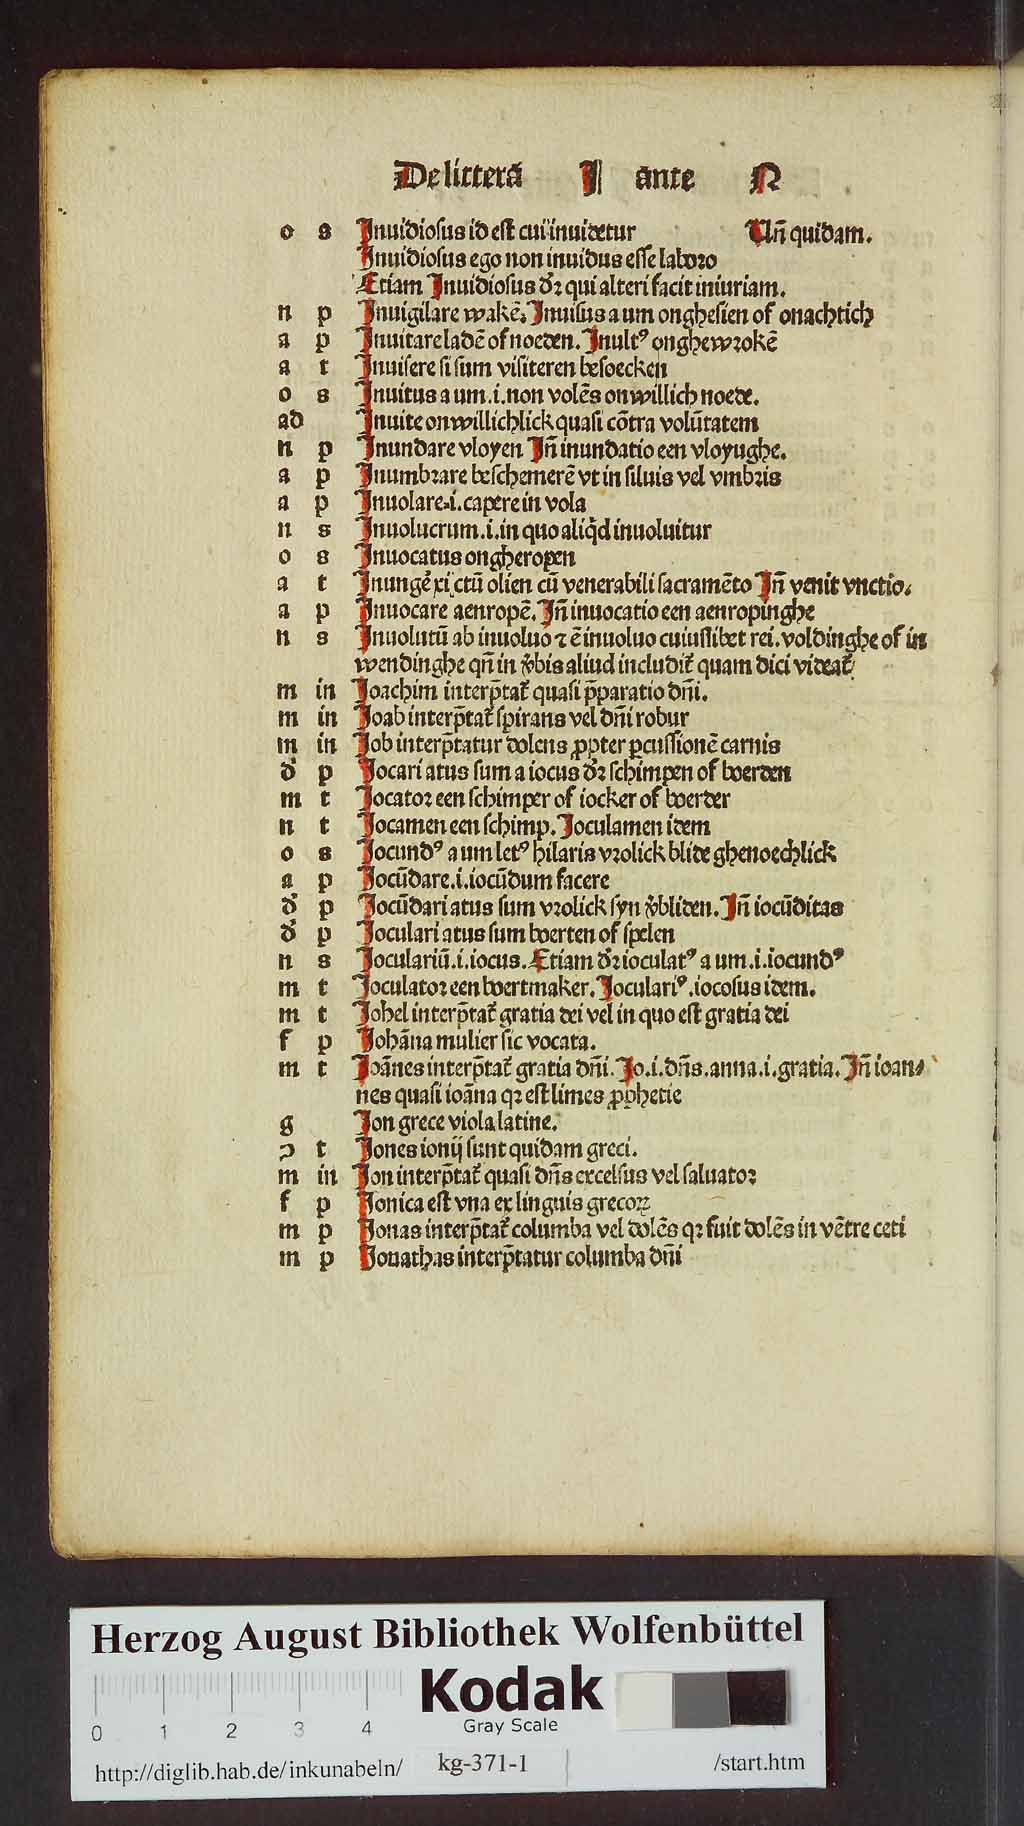 De litterā I ante N
o s Inuidiosus id est cui inuidetur Vn̄ quidam.
Inuidiosus ego non inuidus esse laboro
Etiam Inuidiosus dr̄ qui alteri facit iniuriam.
n p Inuigilare wakē. Inuisus a um onghesien of onachtich
a p Inuitare ladē of noeden. Inultꝰ onghewrokē
a t Inuisere si sum visiteren besoecken
o s Inuitus a um .i. non volēs onwillich noede.
ad Inuite onwillichlick quasi cōtra volūtatem
n p Inundare vloyen Jn̄ inundatio een vloyughe.
a p Inumbrare beschemerē vt in siluis vel vmbris
a p Inuolare .i. capere in vola
n s Inuolucrum .i. in quo aliqd inuoluitur
o s Inuocatus ongheropen
a t Inungē xi ctū olien cū venerabili sacramēto Jn̄ venit vnctio.
a p Inuocare aenropē. Jn̄ inuocatio een aenropinghe
n s Inuolutū ab inuoluo ⁊ ē inuoluo cuiuslibet rei. voldinghe of in
wendinghe qn̄ in v̄bis aliud includit᷑ quam dici videat᷑
m in Joachim interp̄tat᷑ quasi p̄paratio dn̄i.
m in Joab interp̄tat᷑ spirans vel dn̄i robur
m in Job interp̄tatur dolens ꝓpter ꝑcussionē carnis
d᷑ p Jocari atus sum a iocus dr̄ schimpen of boerden
m t Jocator een schimper of iocker of boerder
n t Jocamen een schimp. Joculamen idem
o s Jocundꝰ a um letꝰ hilaris vrolick blide ghenoechlick
a p Jocūdare .i. iocūdum facere
d᷑ p Jocūdari atus sum vrolick syn v̄bliden. Jn̄ iocūditas
d᷑ p Joculari atus sum boerten of spelen
n s Joculariū .i. iocus. Etiam dr̄ ioculatꝰ a um .i. iocundꝰ
m t Joculator een boertmaker. Joculariꝰ .iocosus idem.
m t Johel interp̄tat᷑ gratia dei vel in quo est gratia dei
f p Johāna mulier sic vocata.
m t Joānes interp̄tat᷑ gratia dn̄i. Jo .i. dn̄s. anna .i. gratia. Jn̄ ioan⸗
nes quasi ioāna qꝛ est limes ꝓphetie
g Jon grece viola latine.
ɔ t Jones ionij sunt quidam greci.
m in Jon interp̄tat᷑ quasi dn̄s excelsus vel saluator
f p Jonica est vna ex linguis grecoꝝ
m p Jonas interp̄tat᷑ columba vel dolēs qꝛ fuit dolēs in vētre ceti
m p Jonathas interp̄tatur columba dn̄i
Herzog August Bibliothek Wolfenbüttel
Kodak
Gray Scale
0 1 2 3 4
http://diglib.hab.de/inkunabeln/ kg-371-1 /start.htm